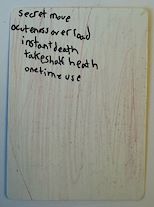 secret move
acuteness over load
instant death
takes half heath
one time use